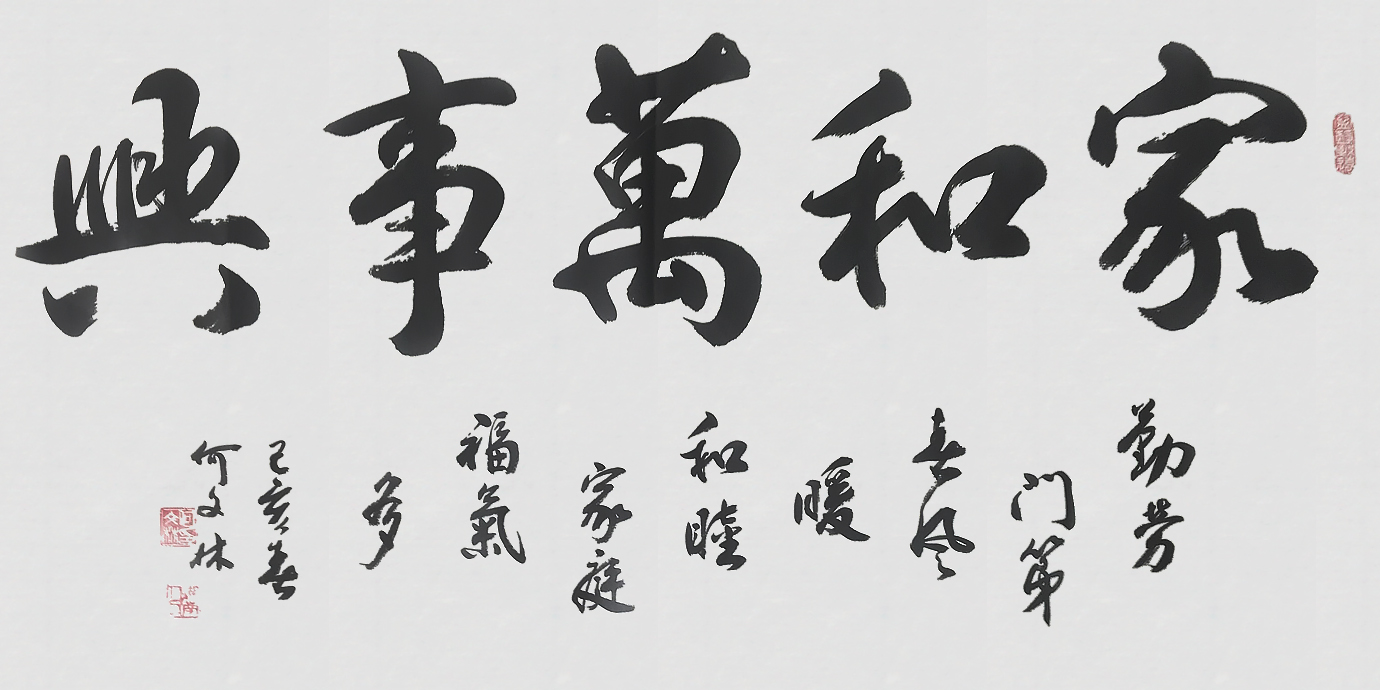 家和萬事興
勤劳
门第
春风
暖
和睦
家庭
福氣
多
己亥春
何文林